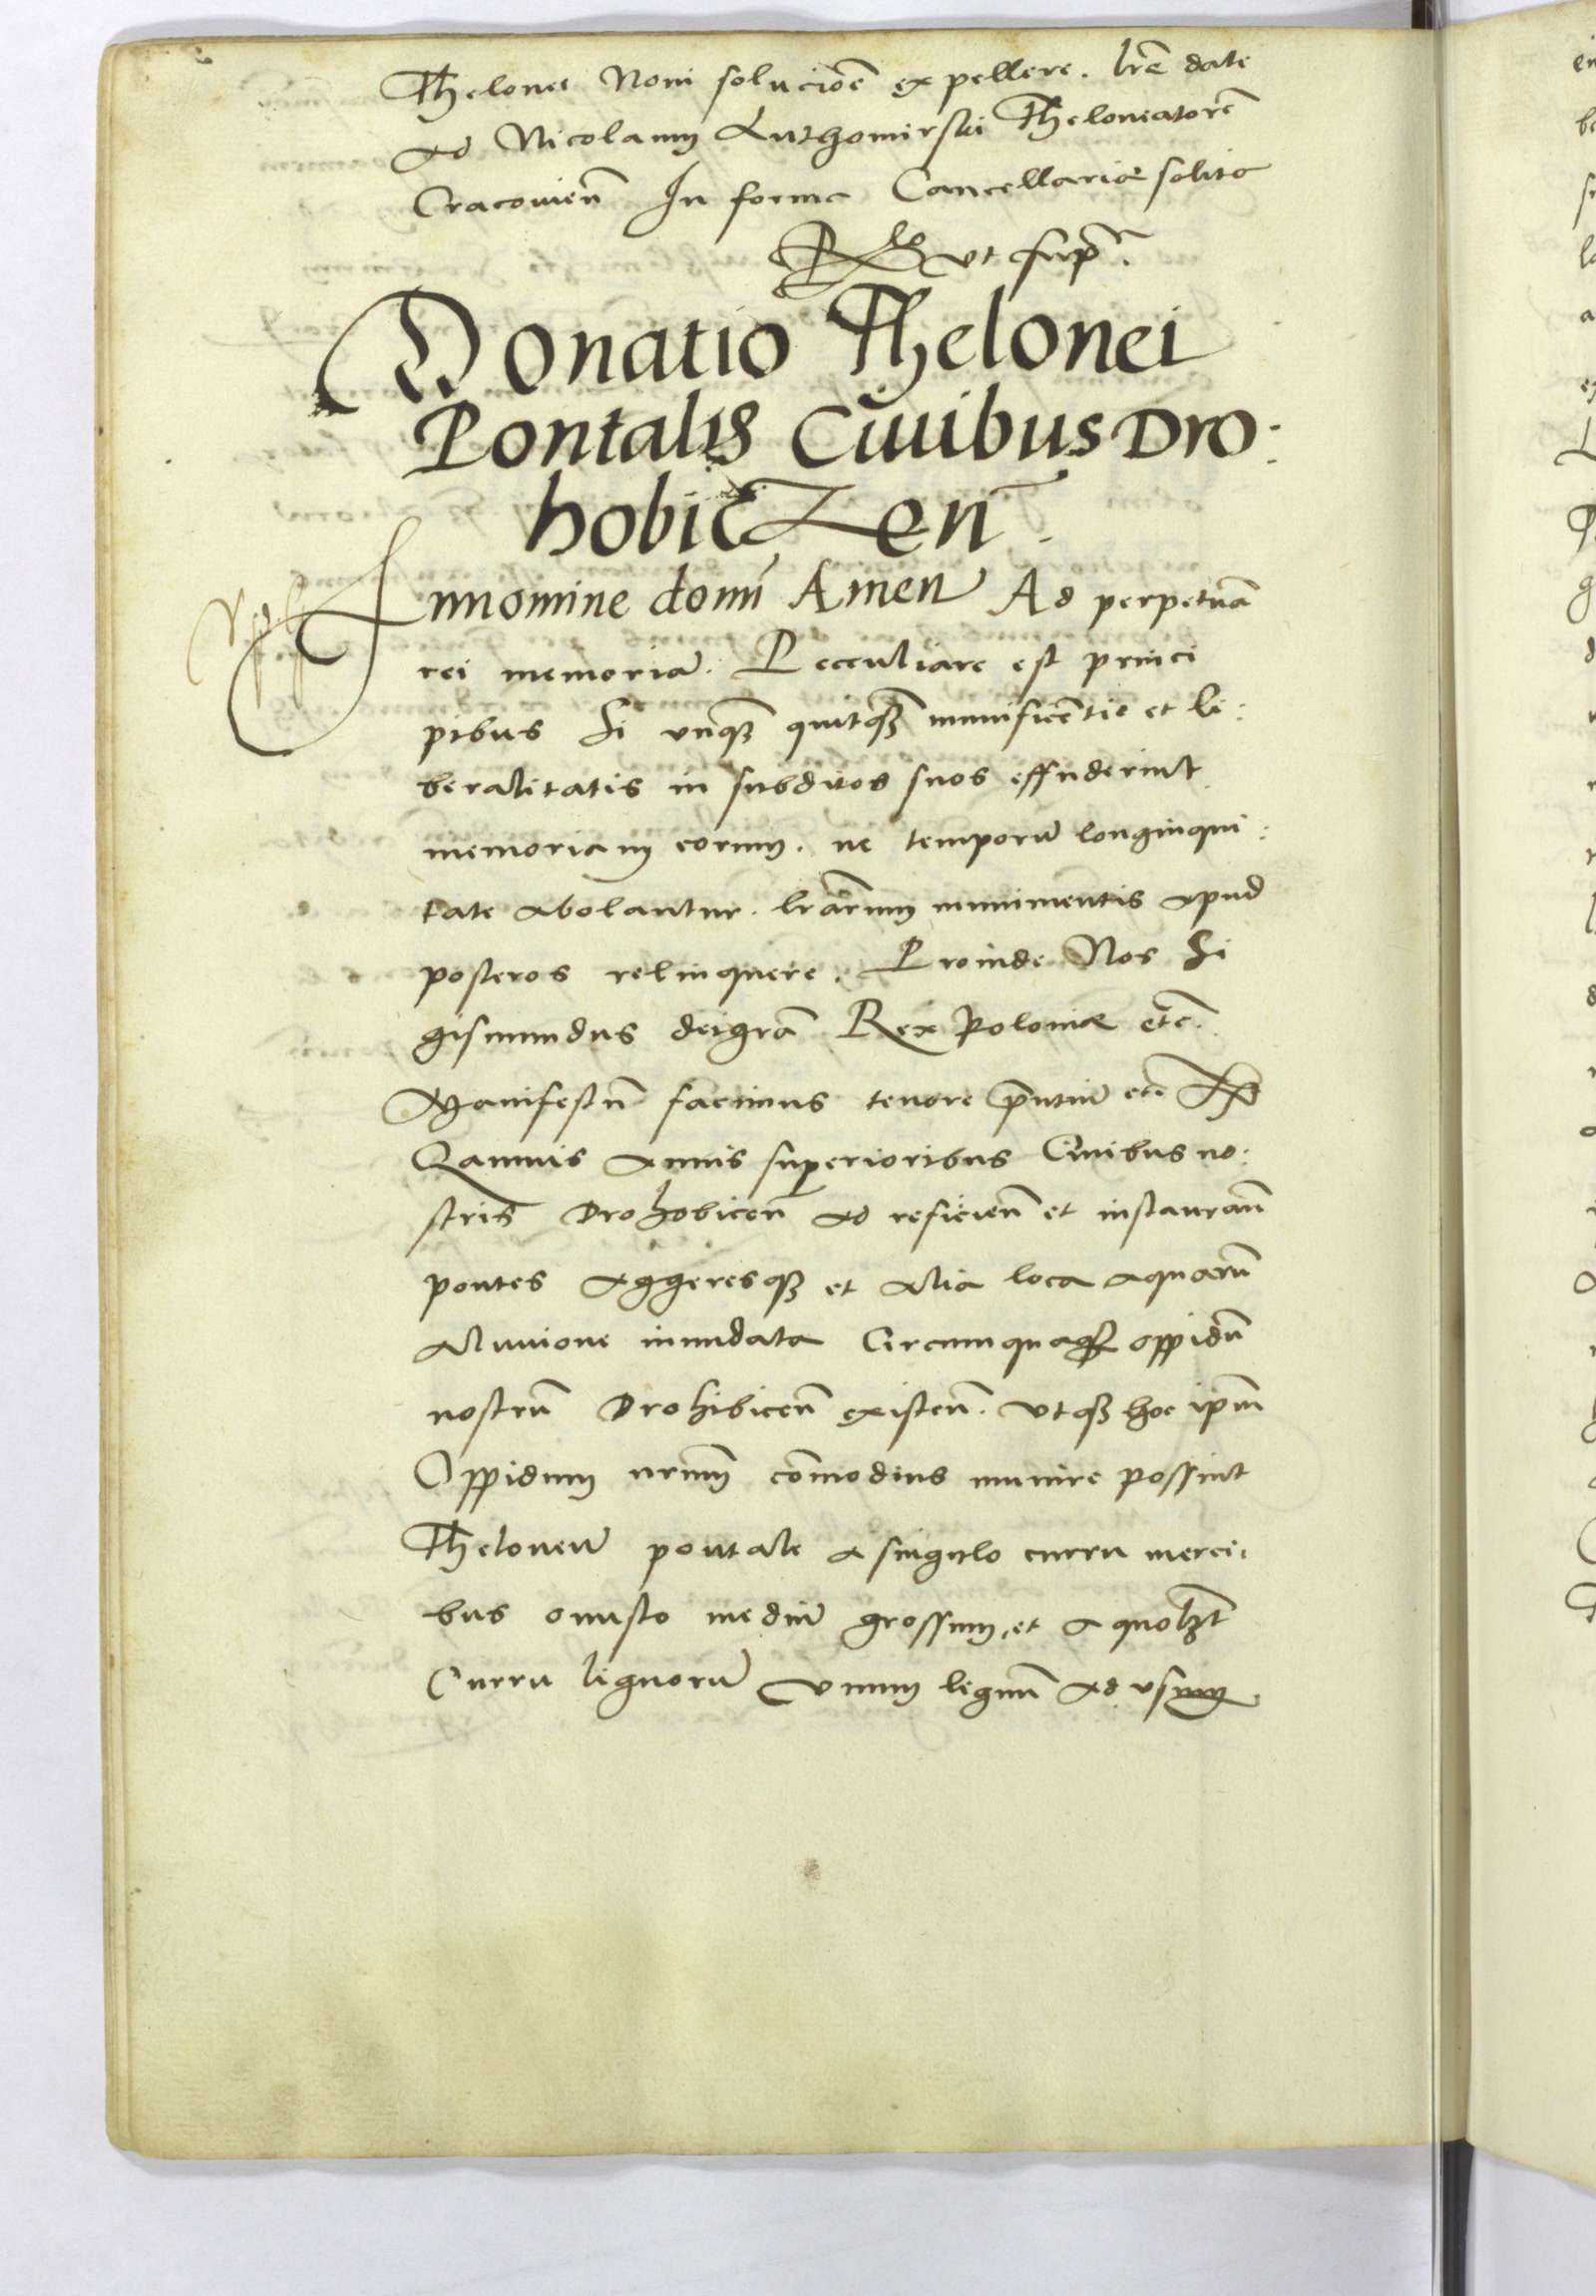 Thelonei Novi solucioē expellere. lrē date
ad Nicolaum Luthomirski Theloneatorē
Cracovien̄ In forma Cancellariæ solita
Rᵒ ut sup̄.
Donatio Thelonei
Pontalis Civibus Dro:
hobicZen̄.
In nomine domi Amen Ad perpetuā
rei memoriā. Pecculiare est princi
pibus Si unqȝ quitqȝ munificētie et li:
beralitatis in subditos suos effuderint
memoriam eorum. ne temporū longinqui:
tate abolantur. lrārum munimentis apud
posteros relinquere. Proinde Nos Si
gismundus dei grā Rex Poloniæ etc̄.
Manifestū facimus tenore p̄ntiū etc̄
Qamvis annis superioribus Civibus no:
stris Drohobicen̄ ad reficien̄ et instauran̄
pontes aggeresqȝ et alia loca aquarū
aluvione inundata Circumquaqȝ oppidū
nostrū Drohibicen̄ existen̄. utqȝ hoc ip̄m
Oppidum nrum̄ com̄odius munire possint
Theloneū pontale a singulo curru merci:
bus onusto mediū grossum, et a quolȝt
Curru lignorū Unum lignū ad usum